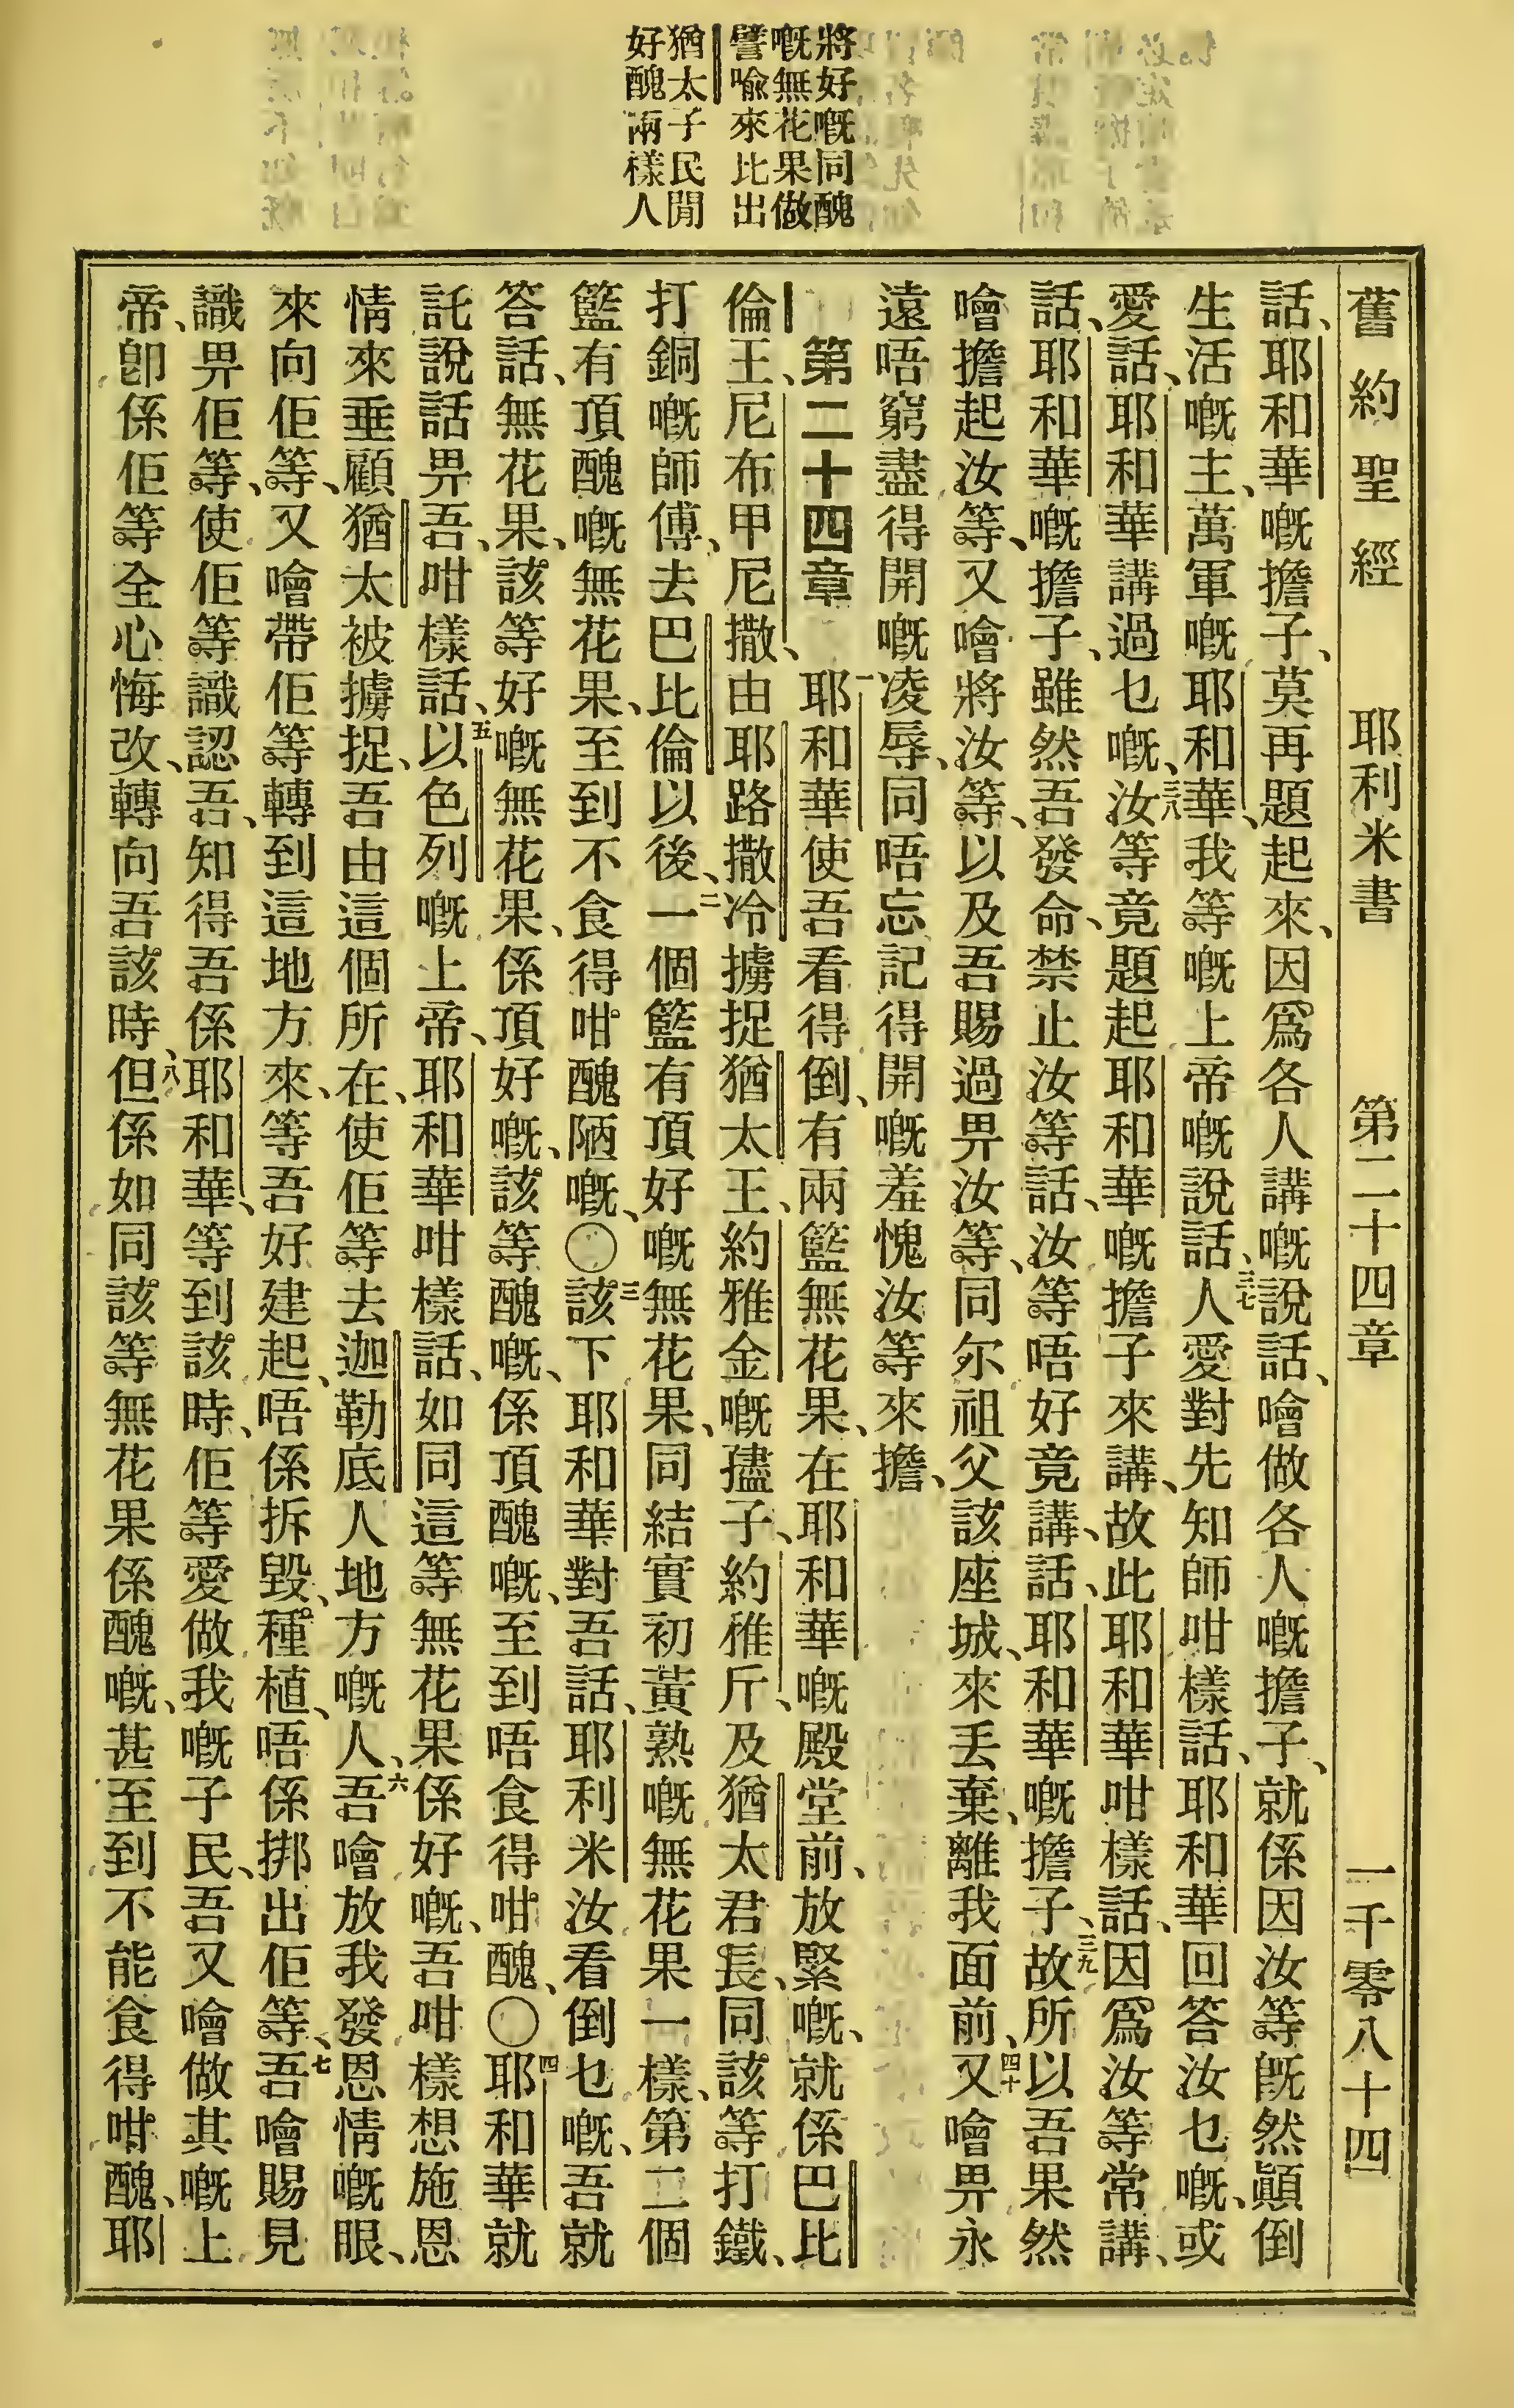 將好嘅同醜
嘅無花果做
譬喩來比出
猶太子民閒
好醜兩樣人
舊約聖經 耶利米書 第二十四章 一千零八十四
話、耶和華嘅擔子、莫再題起來、因爲各人講嘅說話、噲做各人嘅擔子、就係因汝等旣然顚倒
生活嘅主、萬軍嘅耶和華、我等嘅上帝嘅說話、三七人愛對先知師咁樣話、耶和華回答汝乜嘅、或
愛話、耶和華講過乜嘅、三八汝等竟題起耶和華嘅擔子來講、故此耶和華咁樣話、因爲汝等常講、
話、耶和華嘅擔子、雖然吾發命、禁止汝等話、汝等唔好竟講、話、耶和華嘅擔子、三九故所以吾果然
噲擔起汝等、又噲將汝等、以及吾賜過畀汝等、同尔祖父該座城、來丢棄、離我面前、四十又噲畀永
遠唔窮盡得開嘅凌辱、同唔忘記得開嘅羞愧汝等來擔、
第二十四章 一耶和華使吾看得倒、有兩籃無花果、在耶和華嘅殿堂前、放緊嘅、就係巴比
倫王、尼布甲尼撒、由耶路撒冷擄捉猶太王、約雅金嘅孻子、約稚斤、及猶太君長、同該等打鐵、
打銅嘅師傅、去巴比倫以後、二一個籃有頂好嘅無花果、同結實初黃熟嘅無花果一樣、第二個
籃有頂醜嘅無花果、至到不食得咁醜陋嘅、〇三該下耶和華對吾話、耶利米汝看倒乜嘅、吾就
答話、無花果、該等好嘅無花果、係頂好嘅、該等醜嘅、係頂醜嘅、至到唔食得咁醜、〇四耶和華就
託說話畀吾、咁樣話、五以色列嘅上帝、耶和華咁樣話、如同這等無花果係好嘅、吾咁樣想施恩
情來垂顧猶太被擄捉、吾由這個所在、使佢等去迦勒底人地方嘅人、六吾噲放我發恩情嘅眼、
來向佢等、又噲帶佢等轉到這地方來、等吾好建起、唔係拆毀、種植、唔係挷出佢等、七吾噲賜見
識畀佢等、使佢等識認吾、知得吾係耶和華、等到該時、佢等愛做我嘅子民、吾又噲做其嘅上
帝、卽係佢等全心悔改、轉向吾該時、八但係如同該等無花果係醜嘅、甚至到不能食得咁醜、耶